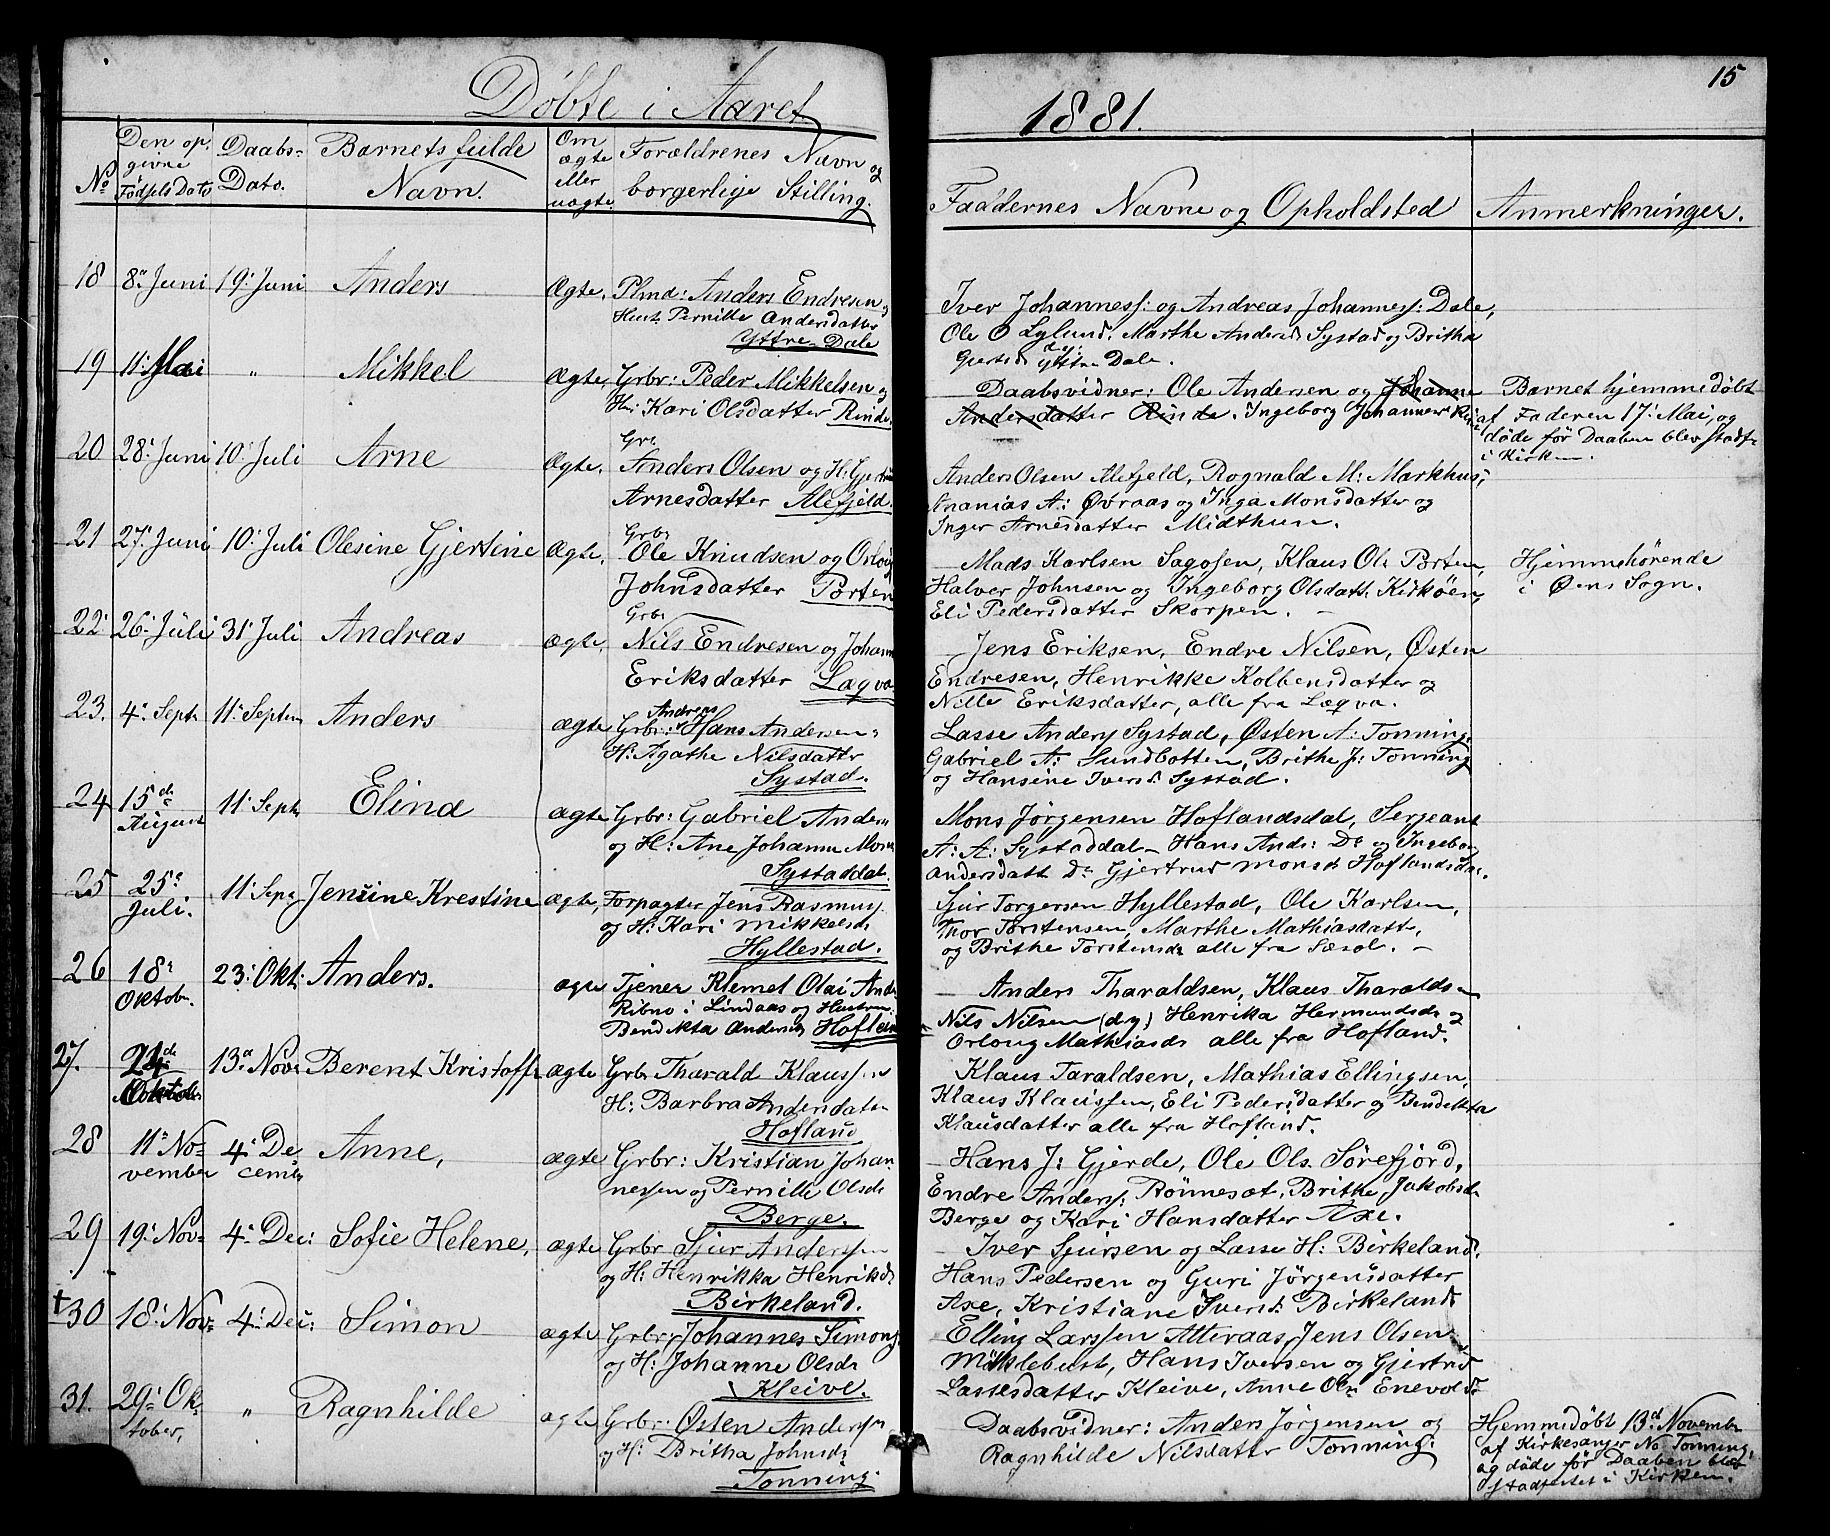 Döbte i Aaret
1881.
15
No
Den op-
givne
Födsels Dato
Daabs-
Dato.
Barnets fulde
Navn.
Om
ægte
eller
uægte.
Forældrenes Navn og
borgerlige Stilling.
Faddernes Navne og Opholdsted
Anmerkninger.
18 8de Juni 19: Juni Anders Ægte, Plmd: Anders Endresen og
Hust. Pernille Andersdatter
Yttre Dale
Iver Johanness: og Andreas Johanness: Dale,
Ole O Lylund. Marthe Andersd Systad og Britha
Gjertsd yttre Dale.
19 11: Mai " Mikkel ægte, Grbr: Peder Mikkelsen og
Hu: Kari Olsdatter Rinde.
Daabsvidner: Ole Andersen og Johanne
Andersdatter Rinde. Ingeborg Johannesd
Barnet hjemmedöbt
af Faderen 17: Mai, og
döde för Daaben blev stadf.
i Kirken.
20 28: Juni 10: Juli Arne Ægte, Grbr
Anders Olsen og H: Gjertrud
Arnesdatter Alefjeld.
Anders Olsen Alefjeld, Rognald M: Markhus,
Ananias A: Övraas og Inga Monsdatter og
Inger Arnesdatter Midthun.
21 27: Juni 10: Juli Olesine Gjertine Ægte, Grbr
Ole Knudsen og Orloug
Johnsdatter Porten
Mads Karlsen Sagosen, Klaus Ols Porten,
Halver Johnsen og Ingeborg Olsdatt: Kirköen,
Eli Pedersdatter Skorpen. –
Hjemmehörende
i Öens Sogn.
22: 26: Juli 31: Juli Andreas ægte, Grbr
Nils Endresen og Johann
Eriksdatter Læqva
Jens Eriksen, Endre Nilsen, Östen
Endresen, Henrikke Kolbensdatter og
Nille Eriksdatter, alle fra Læqva.
23. 4: Sept. 11: Septem Anders ægte Andreas
Grbr: Hans Andersen,
H: Agathe Nilsdatter
Systad.
Lasse Anders Systad, Östen A: Tonning,
Gabriel A: Sundbotten, Brithe J: Tonning
og Hansine Iversd. Systad.
24 15de
August 11: Sept Elina ægte Grbr: Gabriel Anders
og H: Ane Johanne Mons
Systaddal.
Mons Jörgensen Hoflandsdal, Sergeant
A: A: Systaddal – Hans Ands: Do og Ingebor
andersdatt Do Gjertrud Monsd. Hoflandsdal.
25 25de
Juli. 11: Sept Jensine Krestine ægte, Forpagter Jens Rasmuss.
og H: Kari Mikkelsd.
Hyllestad.
Sjur Torgersen Hyllestad, Ole Karlsen,
Thor Torstensen, Marthe Mathiasdatt,
og Brithe Torstensd. alle fra Sæsol. –
26 18:
Oktober. 23: Okt: Anders. ægte Tjener Klemet Olai Ands
Ribno i Lindaas og Hustru
Bendikta Andersd. Hofland
– Anders Tharaldsen, Klaus Tharaldsen
Nils Nilsen (dy) Henrika Hermundsd. og
Orloug Mathiasd. alle fra Hofland.
27. 24de
Oktober 13de Nov: Berent Kristoffer ægte Grbr Tharald Klaussen
H: Barbra Andersdatter
Hofland
Klaus Taraldsen, Mathias Ellingsen,
Klaus Klaussen, Eli Pedersdatter og Bendikta
Klausdatter alle fra Hofland.
28 11: No-
vember 4: De-
cember Anne, ægte Grbr: Kristian Johan-
nessen og Pernille Olsd:
Berge.
– Hans J: Gjerde, Ole Ols. Sörefjord,
Endre Anderss: Rönneset. Brithe Jakobsd.
Berge og Kari Hansdatter Axe.
29 19: Nov: 4: Dec: Sofie Helene, ægte Grbr Sjur Anderssen
og H: Henrikka Henriksd.
Birkeland.
– Iver Sjursen og Lasse H: Birkeland.
Hans Pedersen og Guri Jörgensdatter
Axe, Kristiane Iversd. Birkeland.
†30 18: Nov: 4: Dec: Simon ægte Grbr, Johannes Simons.
og H: Johanne Olsd:
Kleive.
Elling Larssen Atteraas, Jens Olsen
Myklebust, Hans Iversen og Gjertrud
Lassesdatter Kleive, Anne Ols: Enevold
31. 29: Ok-
tober, " Ragnhilde ægte Grbr: Östen Anderssen
og H: Britha Johnsd:
Tonning.
Daabsvidner: Anders Jörgensen og
Ragnhilde Nilsdatter Tonning.
Hjemmedöbt 13d November
af Kirkesanger No Tonning,
og döde för Daaben blev
stadfestet i Kirken.